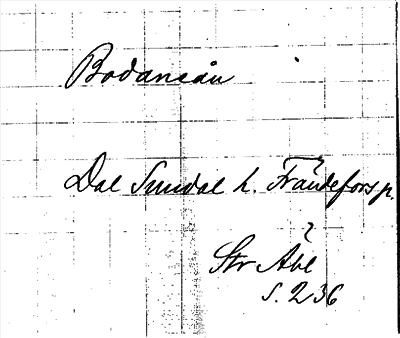 Bodaneån
Dal Sundal h. Frändefors p.
Str
S. 236